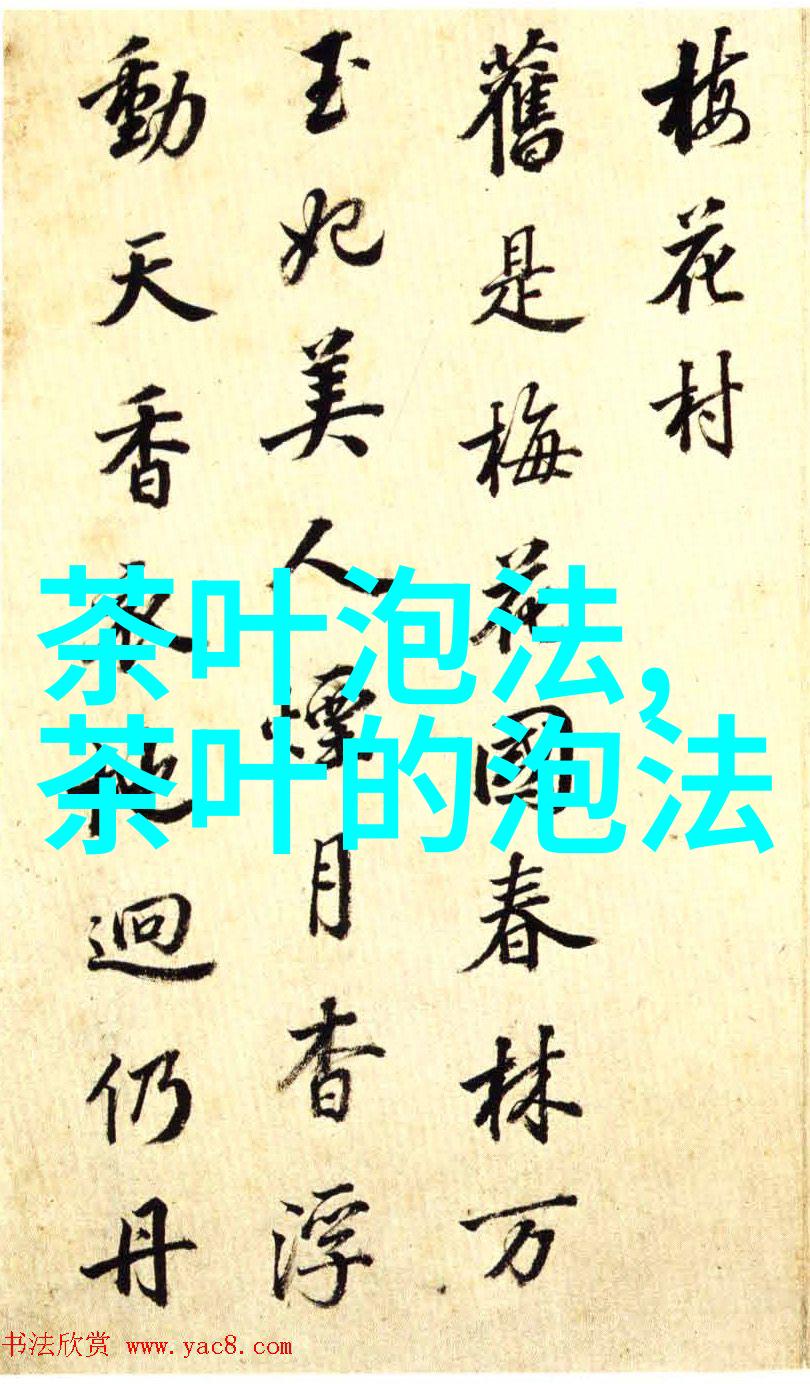 梅花村
舊是梅花國春林万
玉妃美人煙月杳浮
動天香迴仍丹
茶叶泡法,
茶叶的泡法
书法欣赏 www.yac8.com